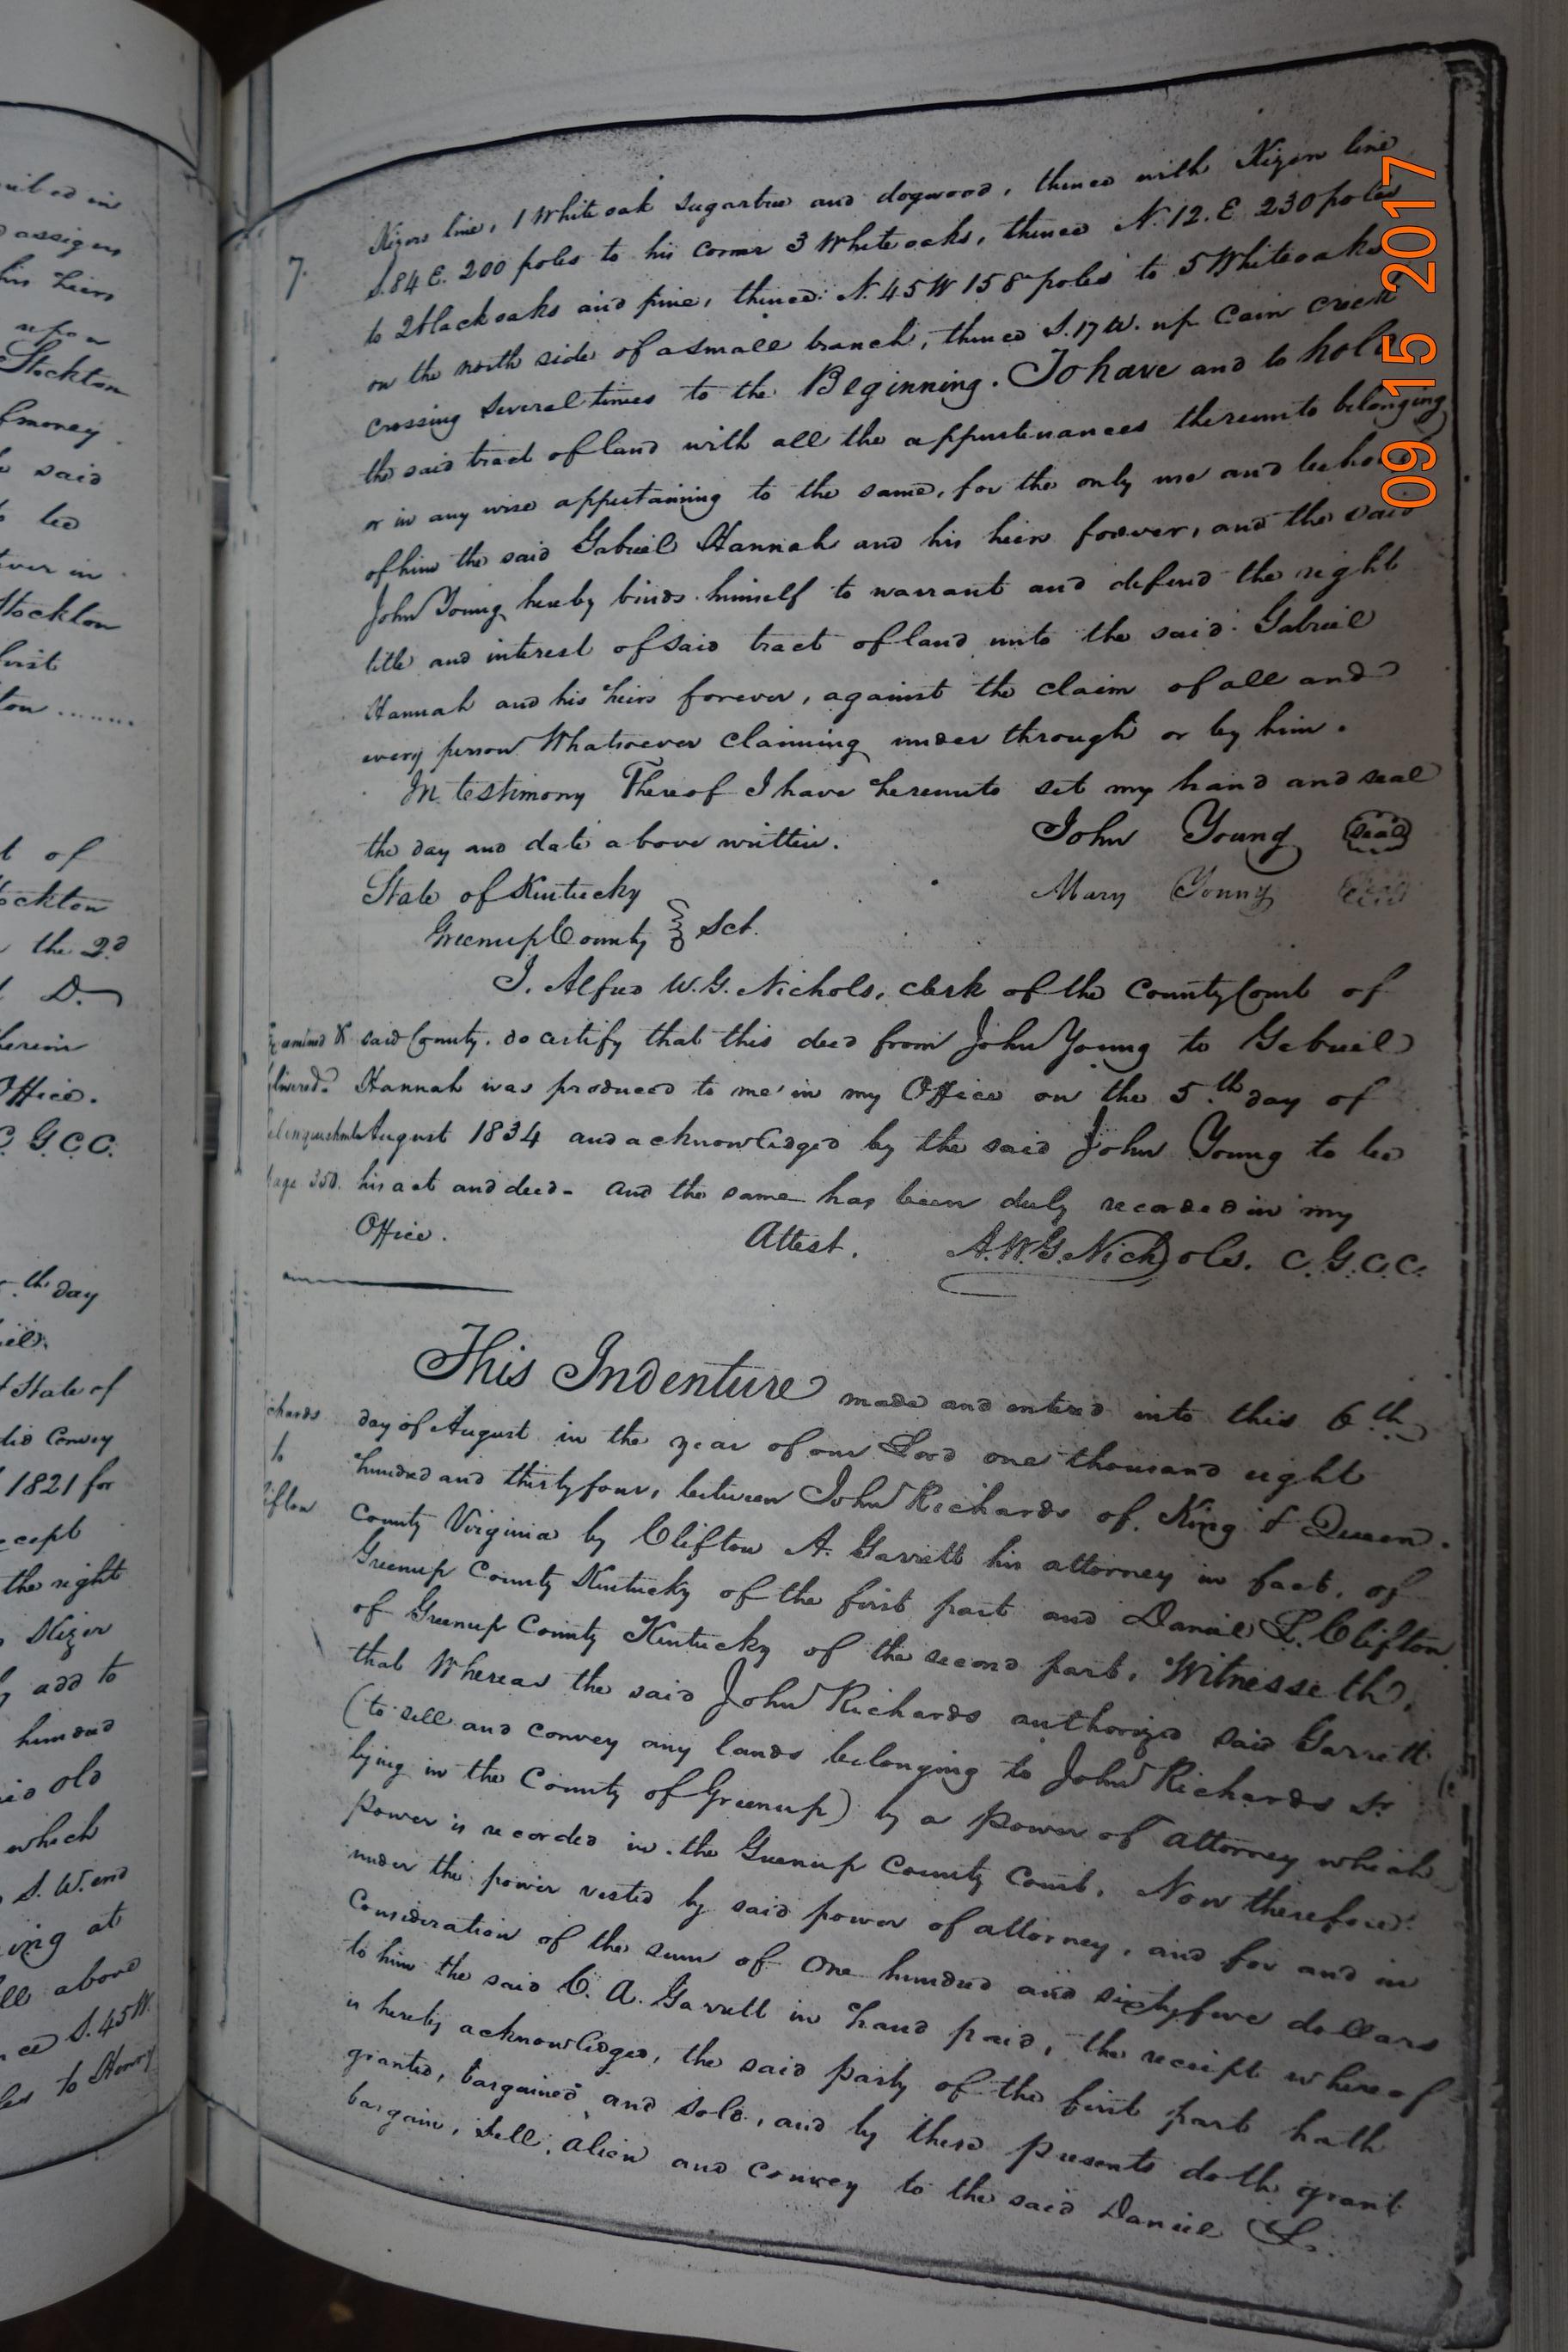 uibed in
assigns
his heirs
upon
Stockton
money.
said
be
ever in
Stockton
first
ton .......
t of
ockton
the 2d
D.
herein
Office.
C. G.C.C.
th day
State of
did Convey
1821 for
except
the right
Nizer
add to
hundred
said old
which
S. W. end
ing at
ll above
ce S. 45 W.
les to Henry
7.
Nizors line, 1 White oak sugartree and dogwood, thence with Nizon line
S. 84 E. 200 poles to his corner 3 White oaks, thence N. 12. E. 230 poles
to 2 black oaks and pine, thence N. 45 W 158 poles to 5 White oaks
on the north side of a small branch, thence S. 17 W. up Cain creek
crossing several times to the Beginning. To have and to hold
the said tract of land with all the appurtenances thereunto belonging
or in any wise appertaining to the same, for the only use and behoof
of him the said Gabriel Hannah and his heirs forever, and the said
John Young hereby binds himself to warrant and defend the right
title and interest of said tract of land unto the said Gabriel
Hannah and his heirs forever, against the claim of all and
every person Whatsoever claiming under through or by him.
In testimony Thereof I have hereunto set my hand and seal
the day and date above written. John Young Seal
State of Kentucky Mary Young Seal
Greenup County Sct.
I. Alfred W. G. Nichols, clerk of the County Court of
Examined & said County. do certify that this deed from John Young to Gabriel
delivered. Hannah was produced to me in my Office on the 5.th day of
Relinquishment August 1834 and acknowledged by the said John Young to be
page 350. his act and deed - and the same has been duly recorded in my
Office. Attest. A. W. G. Nichols. C. G. C. C.
This Indenture made and entered into this 6th
chards day of August in the year of our Lord one thousand eight
to hundred and thirty four, between John Richards of King & Queen
lifton County Virginia by Clifton A. Garrett his attorney in fact, of
Greenup County Kentucky of the first part and Daniel L. Clifton
of Greenup County Kentucky of the second part, Witnesseth,
that Whereas the said John Richards authorized said Garrett
(to sell and convey any lands belonging to John Richards Sr
lying in the County of Greenup) by a power of attorney which
power is recorded in the Greenup County Court. Now therefore
under the power vested by said power of attorney, and for and in
Consideration of the sum of One hundred and sixty five dollars
to him the said C. A. Garrett in hand paid, the receipt whereof
is hereby acknowledged, the said party of the first part hath
granted, bargained and sold, and by these presents doth grant
bargain, sell, alien and convey to the said Daniel L.
09 15 2017